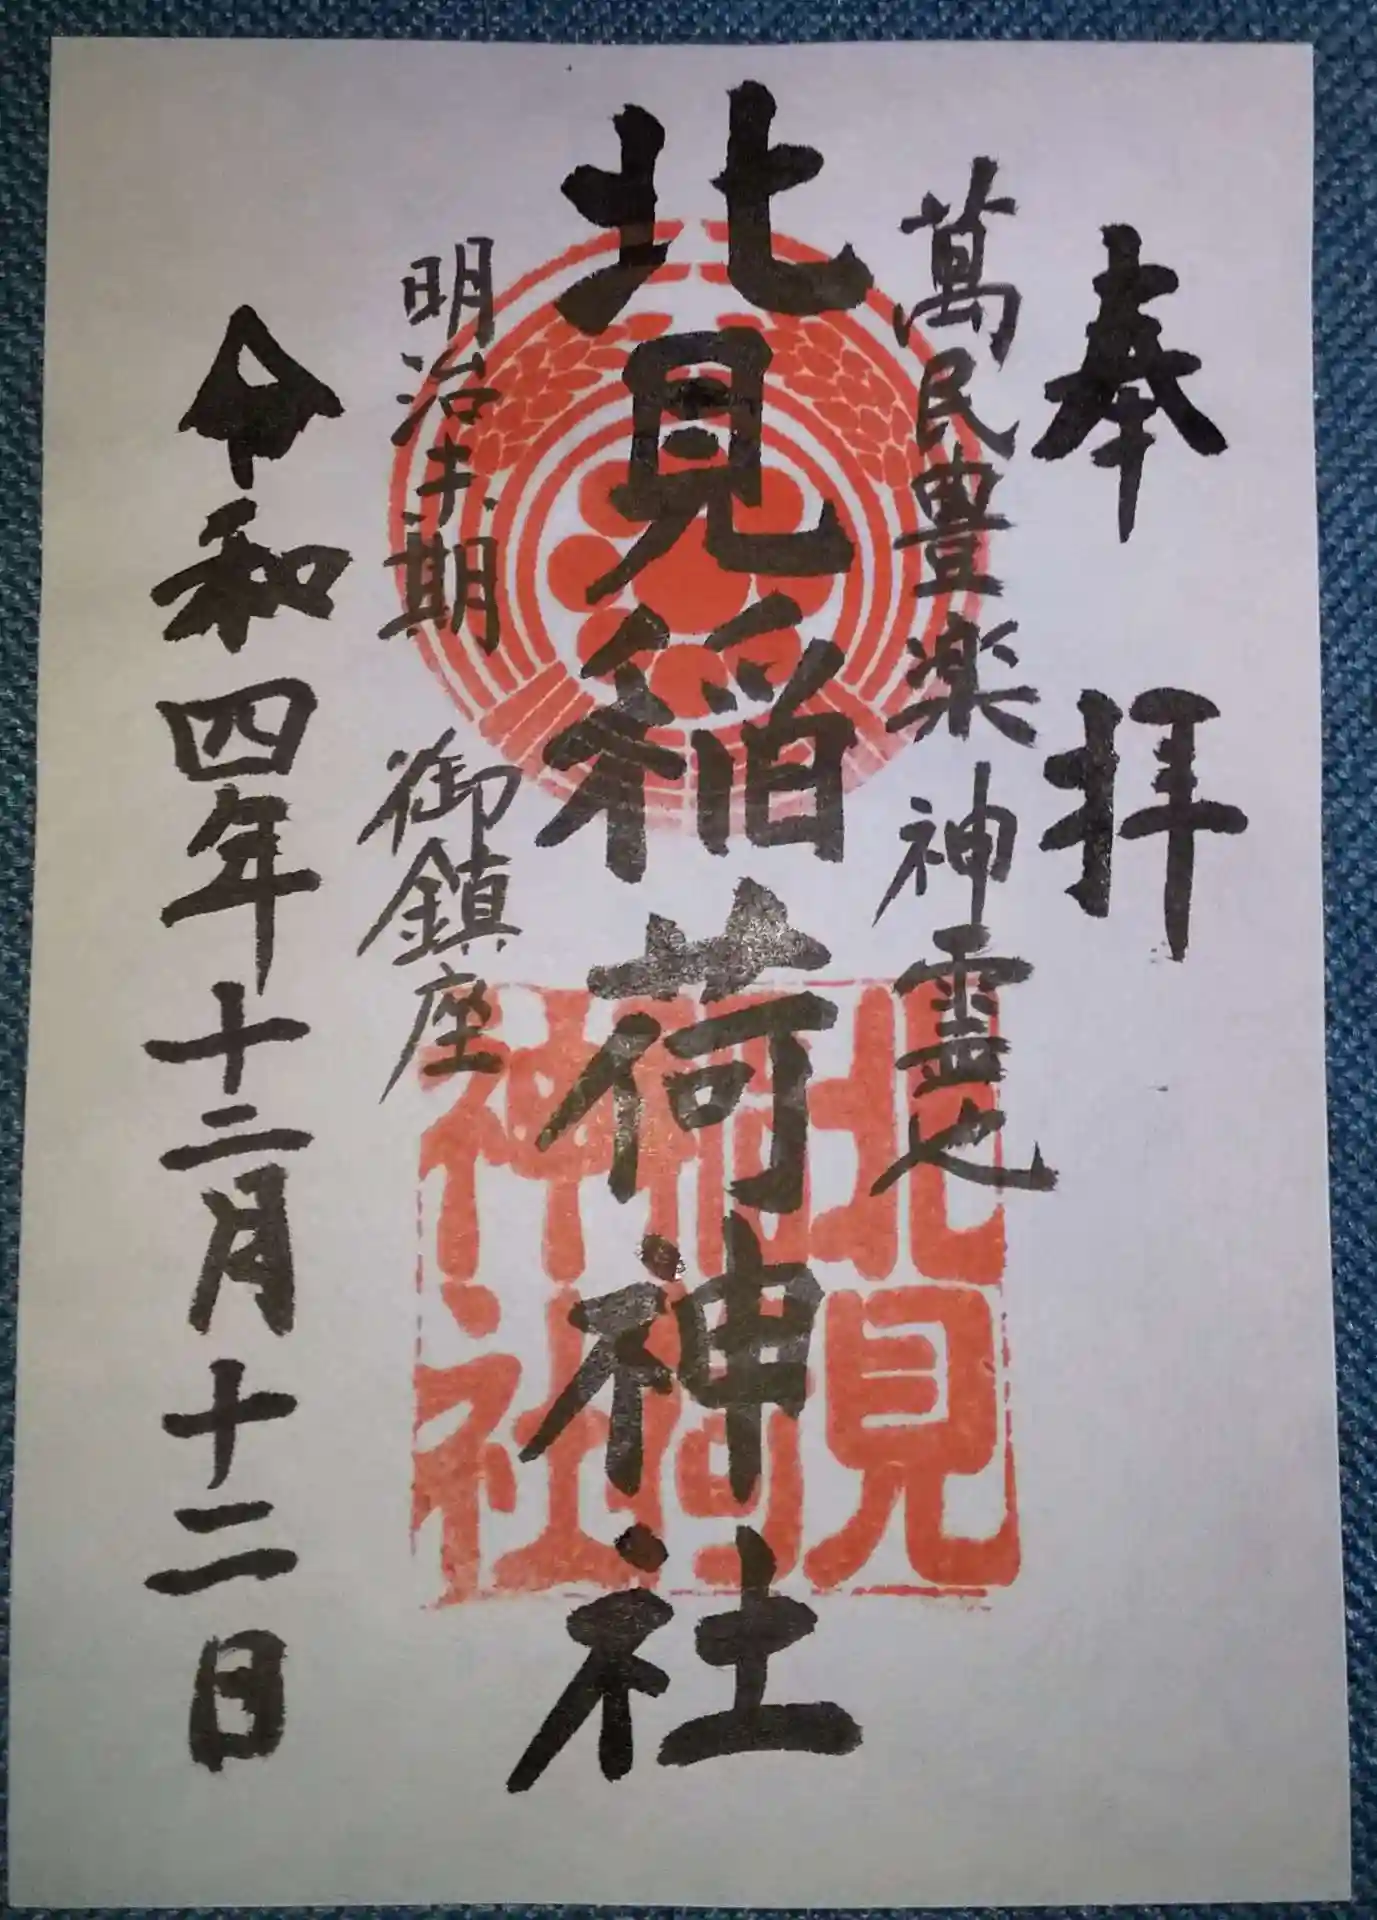 奉拝
萬民豊楽神霊也
北見稲荷神社
明治末期御鎮座
令和四年十二月十二日
北見
稲荷
神社